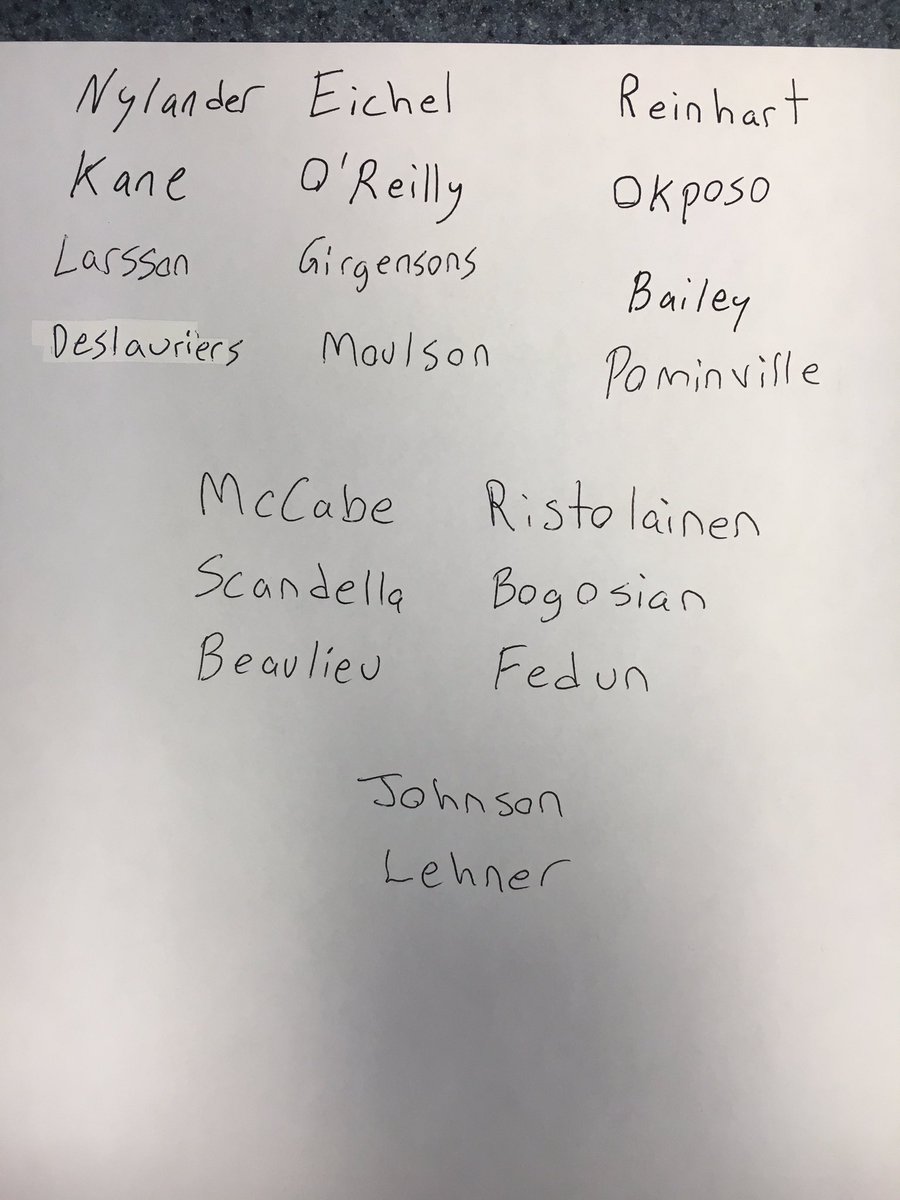 Nylander Eichel Reinhart
Kane O'Reilly Okposo
Larsson Girgensons Bailey
Deslauriers Moulson Pominville
McCabe Ristolainen
Scandella Bogosian
Beaulieu Fedun
Johnson
Lehner